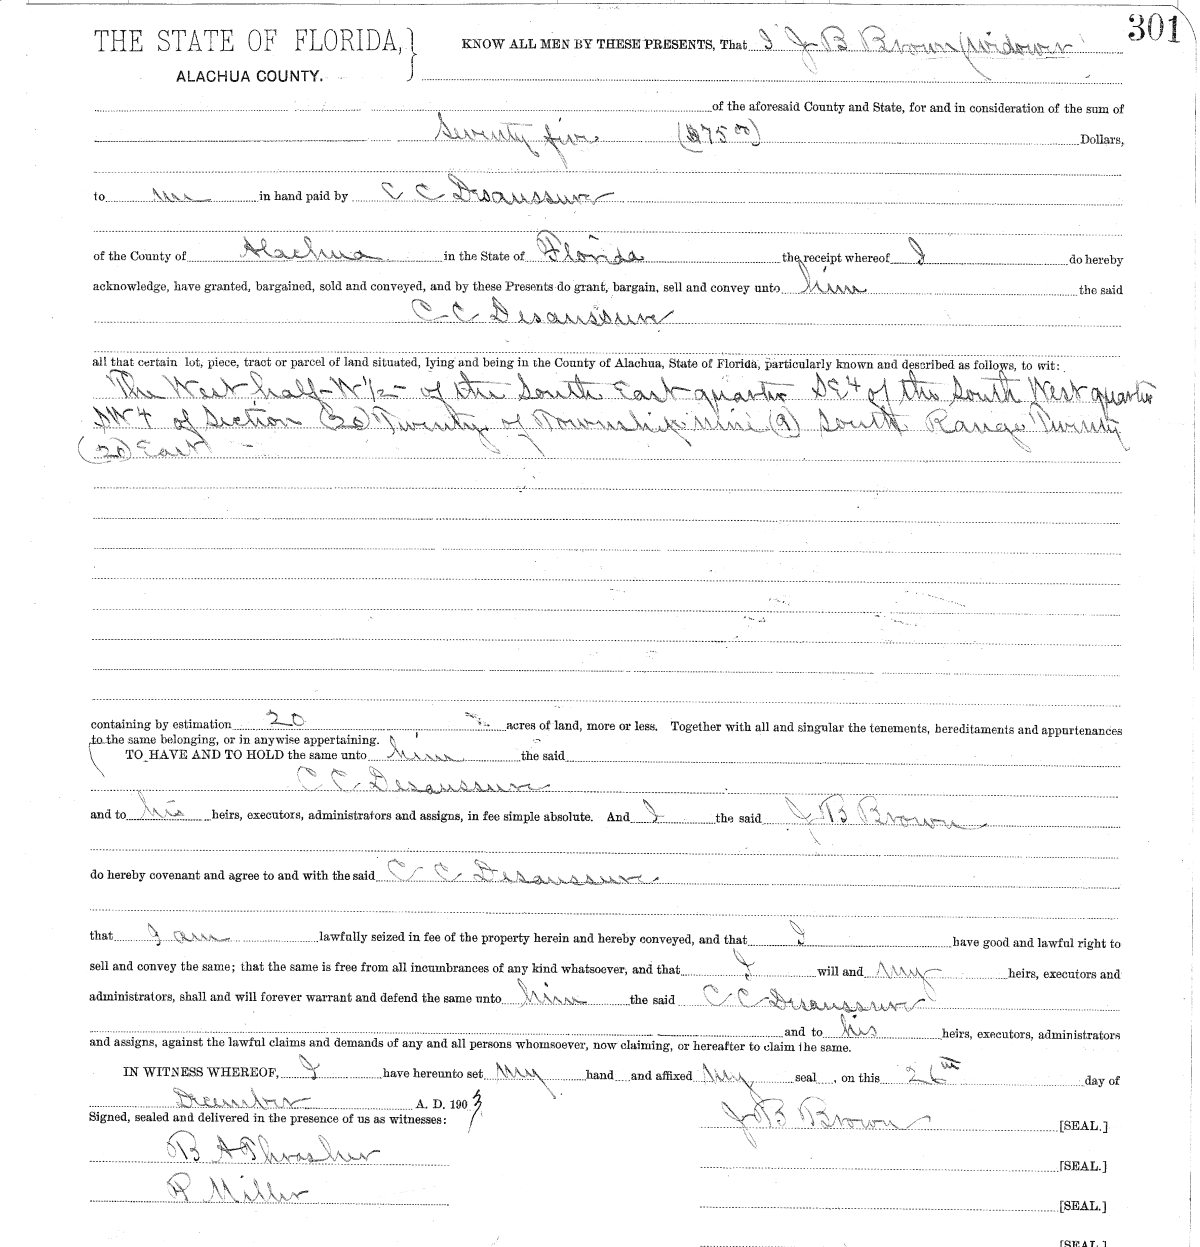 301
THE STATE OF FLORIDA,} KNOW ALL MEN BY THESE PRESENTS, That I J B Brown (widower
ALACHUA COUNTY.
of the aforesaid County and State, for and in consideration of the sum of
Seventy five ($75 00) Dollars,
to me in hand paid by C C Desaussure
of the County of Alachua in the State of Florida the receipt whereof I do hereby
acknowledge, have granted, bargained, sold and conveyed, and by these Presents do grant, bargain, sell and convey unto him the said
C C Desaussure
all that certain lot, piece, tract or parcel of land situated, lying and being in the County of Alachua, State of Florida, particularly known and described as follows, to wit:
The West half-W 1/2 - of the South East quarter SE 4 of the South West quarter
SW 4 of Section (20) Twenty of Township Nine (9) South Range Twenty
(20) East -
containing by estimation 20 acres of land, more or less. Together with all and singular the tenements, hereditaments and appurtenances
to the same belonging, or in anywise appertaining.
TO HAVE AND TO HOLD the same unto him the said
C C Desaussure
and to his heirs, executors, administrators and assigns, in fee simple absolute. And I the said J B Brown
do hereby covenant and agree to and with the said C C Desaussure
that I am lawfully seized in fee of the property herein and hereby conveyed, and that I have good and lawful right to
sell and convey the same; that the same is free from all incumbrances of any kind whatsoever, and that I will and my heirs, executors and
administrators, shall and will forever warrant and defend the same unto him the said C C Desaussure
and to his heirs, executors, administrators
and assigns, against the lawful claims and demands of any and all persons whomsoever, now claiming, or hereafter to claim the same.
IN WITNESS WHEREOF, I have hereunto set my hand and affixed my seal , on this 26th day of
December A. D. 1903
Signed, sealed and delivered in the presence of us as witnesses: J B Brown [SEAL.]
B A Thrasher
[SEAL.]
R Miller
[SEAL.]
[SEAL.]